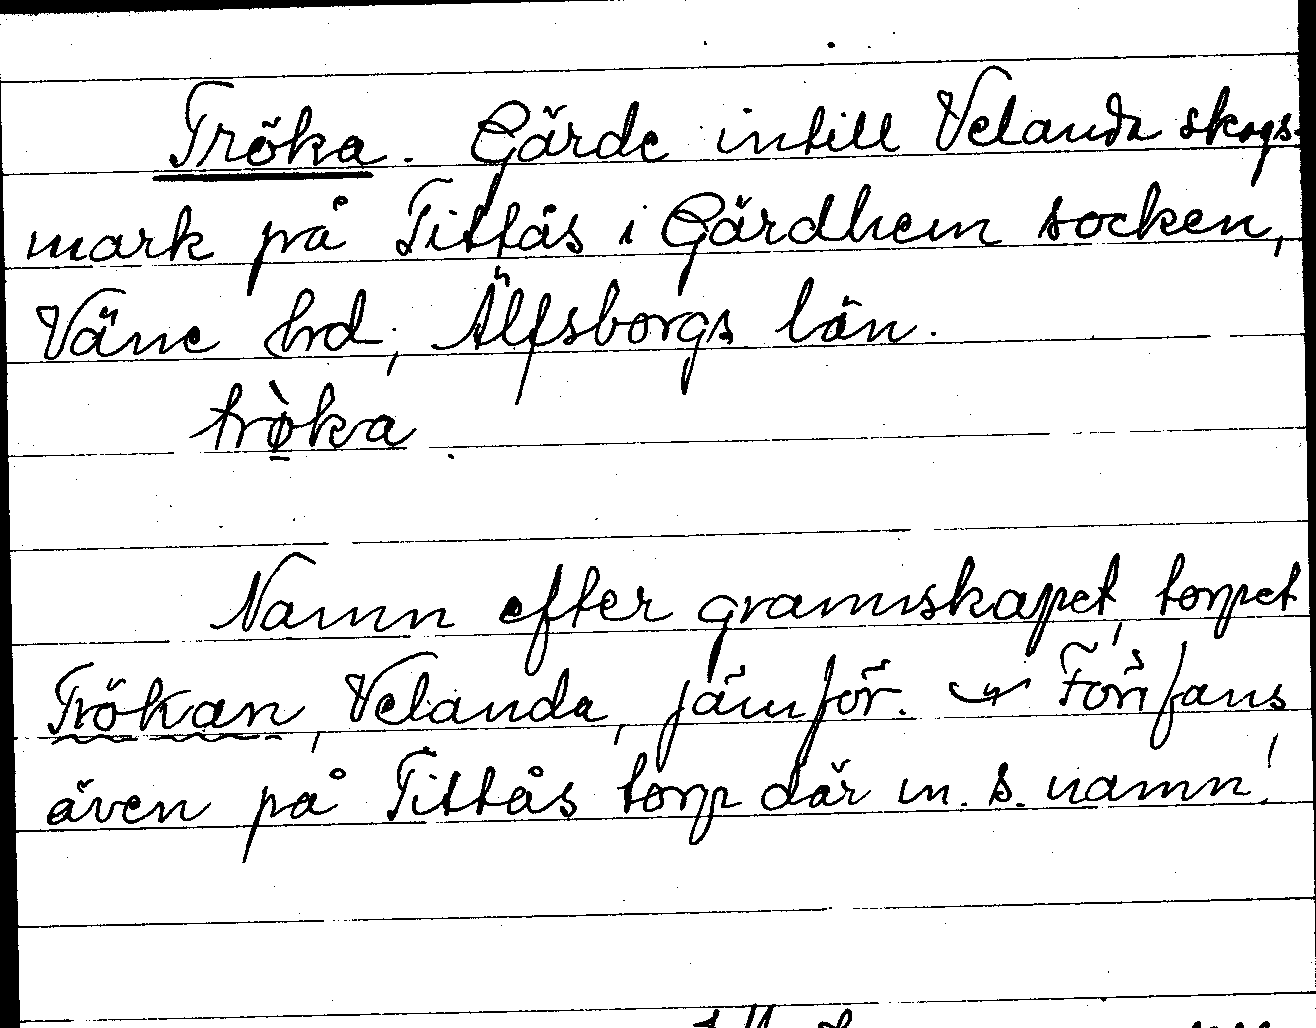 Tröka. Gärde intill Velanda skogs-
mark på Tittås i Gärdhem socken,
Väne hrd, Älfsborgs län.
trø̀ka
Namn efter grannskapet, torpet
Trökan, Velanda, jämför.
även på Tittås torp där m. s. namn!